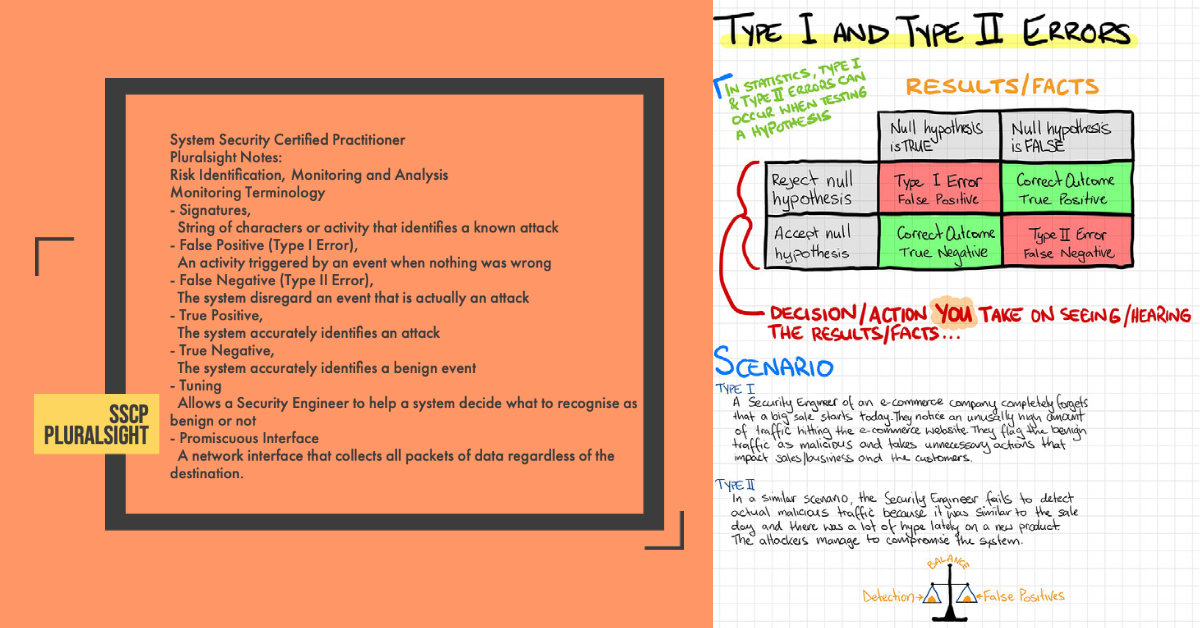 System Security Certified Practitioner
Pluralsight Notes:
Risk Identification, Monitoring and Analysis
Monitoring Terminology
- Signatures,
String of characters or activity that identifies a known attack
- False Positive (Type I Error),
An activity triggered by an event when nothing was wrong
- False Negative (Type II Error),
The system disregard an event that is actually an attack
- True Positive,
The system accurately identifies an attack
- True Negative,
The system accurately identifies a benign event
- Tuning
Allows a Security Engineer to help a system decide what to recognise as
benign or not
- Promiscuous Interface
A network interface that collects all packets of data regardless of the
destination.
SSCP
PLURALSIGHT
TYPE I AND TYPE II ERRORS
IN STATISTICS, TYPE I
& TYPE II ERRORS CAN
OCCUR WHEN TESTING
A HYPOTHESIS
RESULTS/FACTS
Null hypothesis
is TRUE
Null hypothesis
is FALSE
Reject null
hypothesis
Type I Error
False Positive
Correct Outcome
True Positive
Accept null
hypothesis
Correct Outcome
True Negative
Type II Error
False Negative
DECISION/ACTION YOU TAKE ON SEEING/HEARING
THE RESULTS/FACTS...
SCENARIO
TYPE I
A Security Engineer of an e-commerce company completely forgets
that a big sale starts today. They notice an unusally high amount
of traffic hitting the e-commerce website. They flag the benign
traffic as malicious and takes unnecessary actions that
impact sales/business and the customers.
TYPE II
In a similar scenario, the Security Engineer fails to detect
actual malicious traffic because it was similar to the sale
day and there was a lot of hype lately on a new product.
The attackers manage to compromise the system.
BALANCE
Detection
False Positives